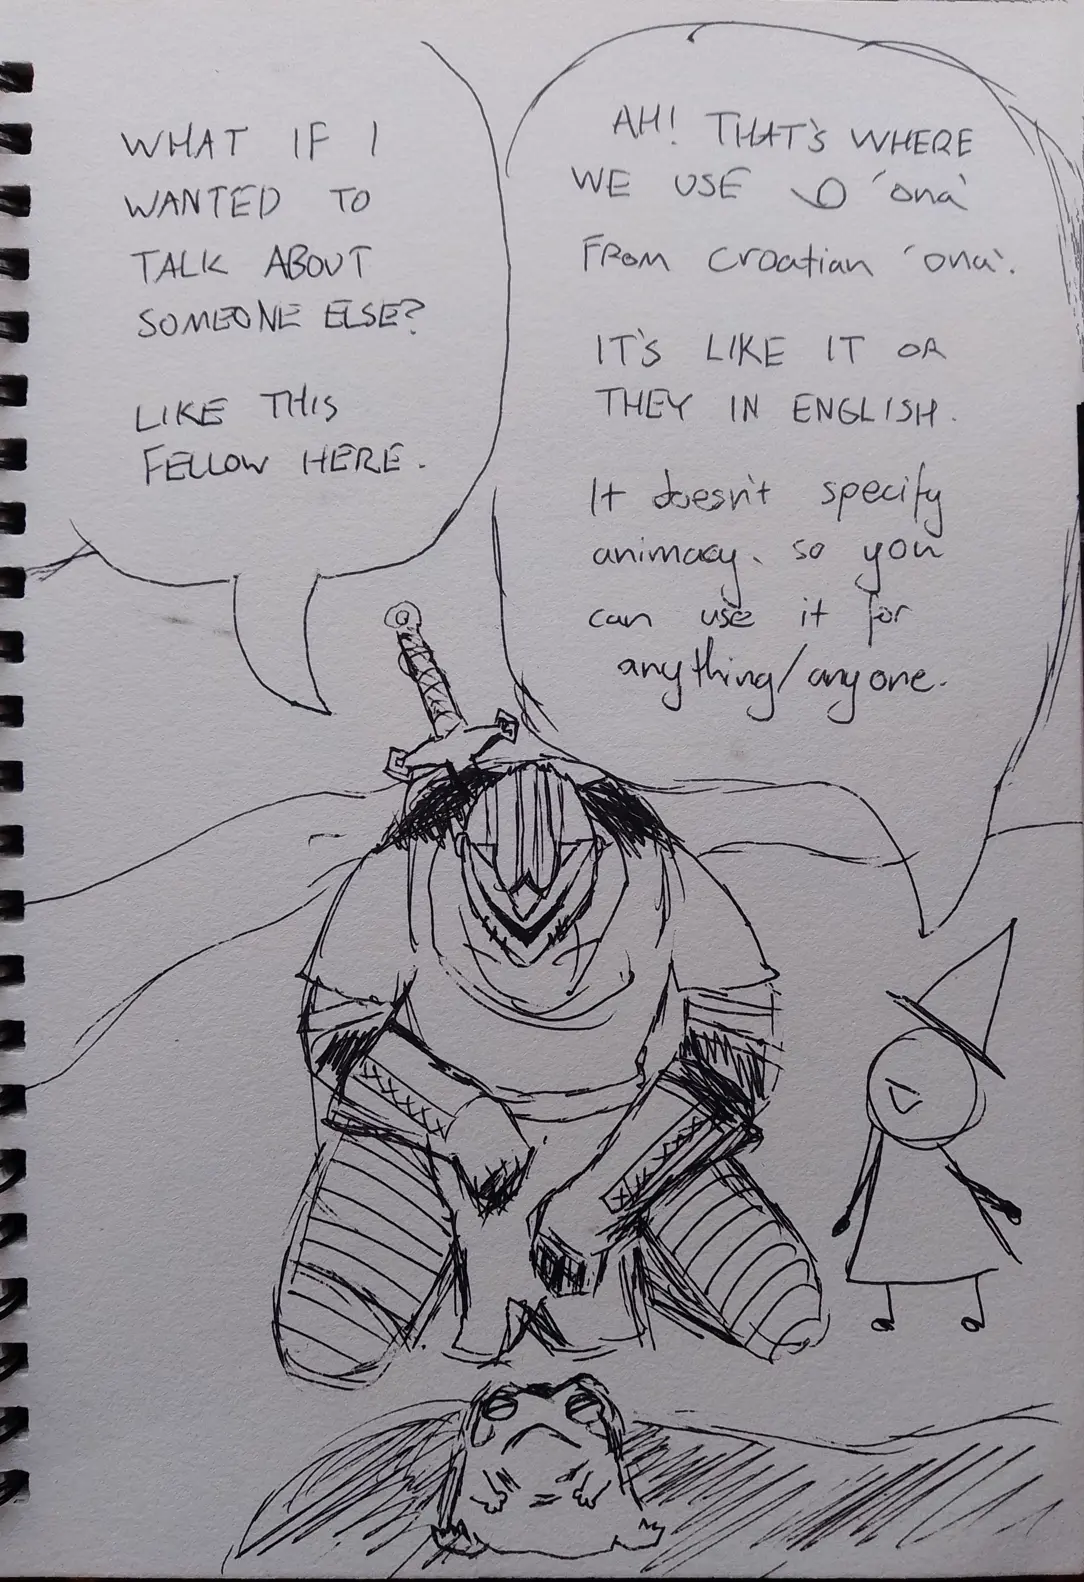 WHAT IF I
WANTED TO
TALK ABOUT
SOMEONE ELSE?
LIKE THIS
FELLOW HERE.
AH! THAT'S WHERE
WE USE 'ona'
FROM Croatian 'ona'.
IT'S LIKE IT OR
THEY IN ENGLISH.
It doesn't specify
animacy. so you
can use it for
anything/anyone.